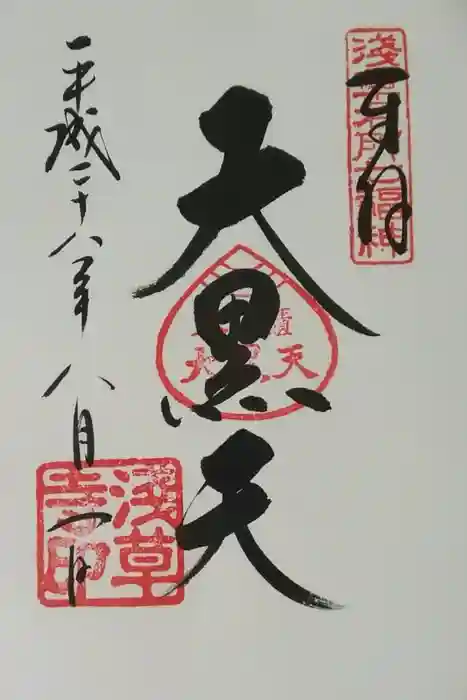 淺草名所七福神
奉拝
大黒天
平成二十八年八月一日
淺草寺印